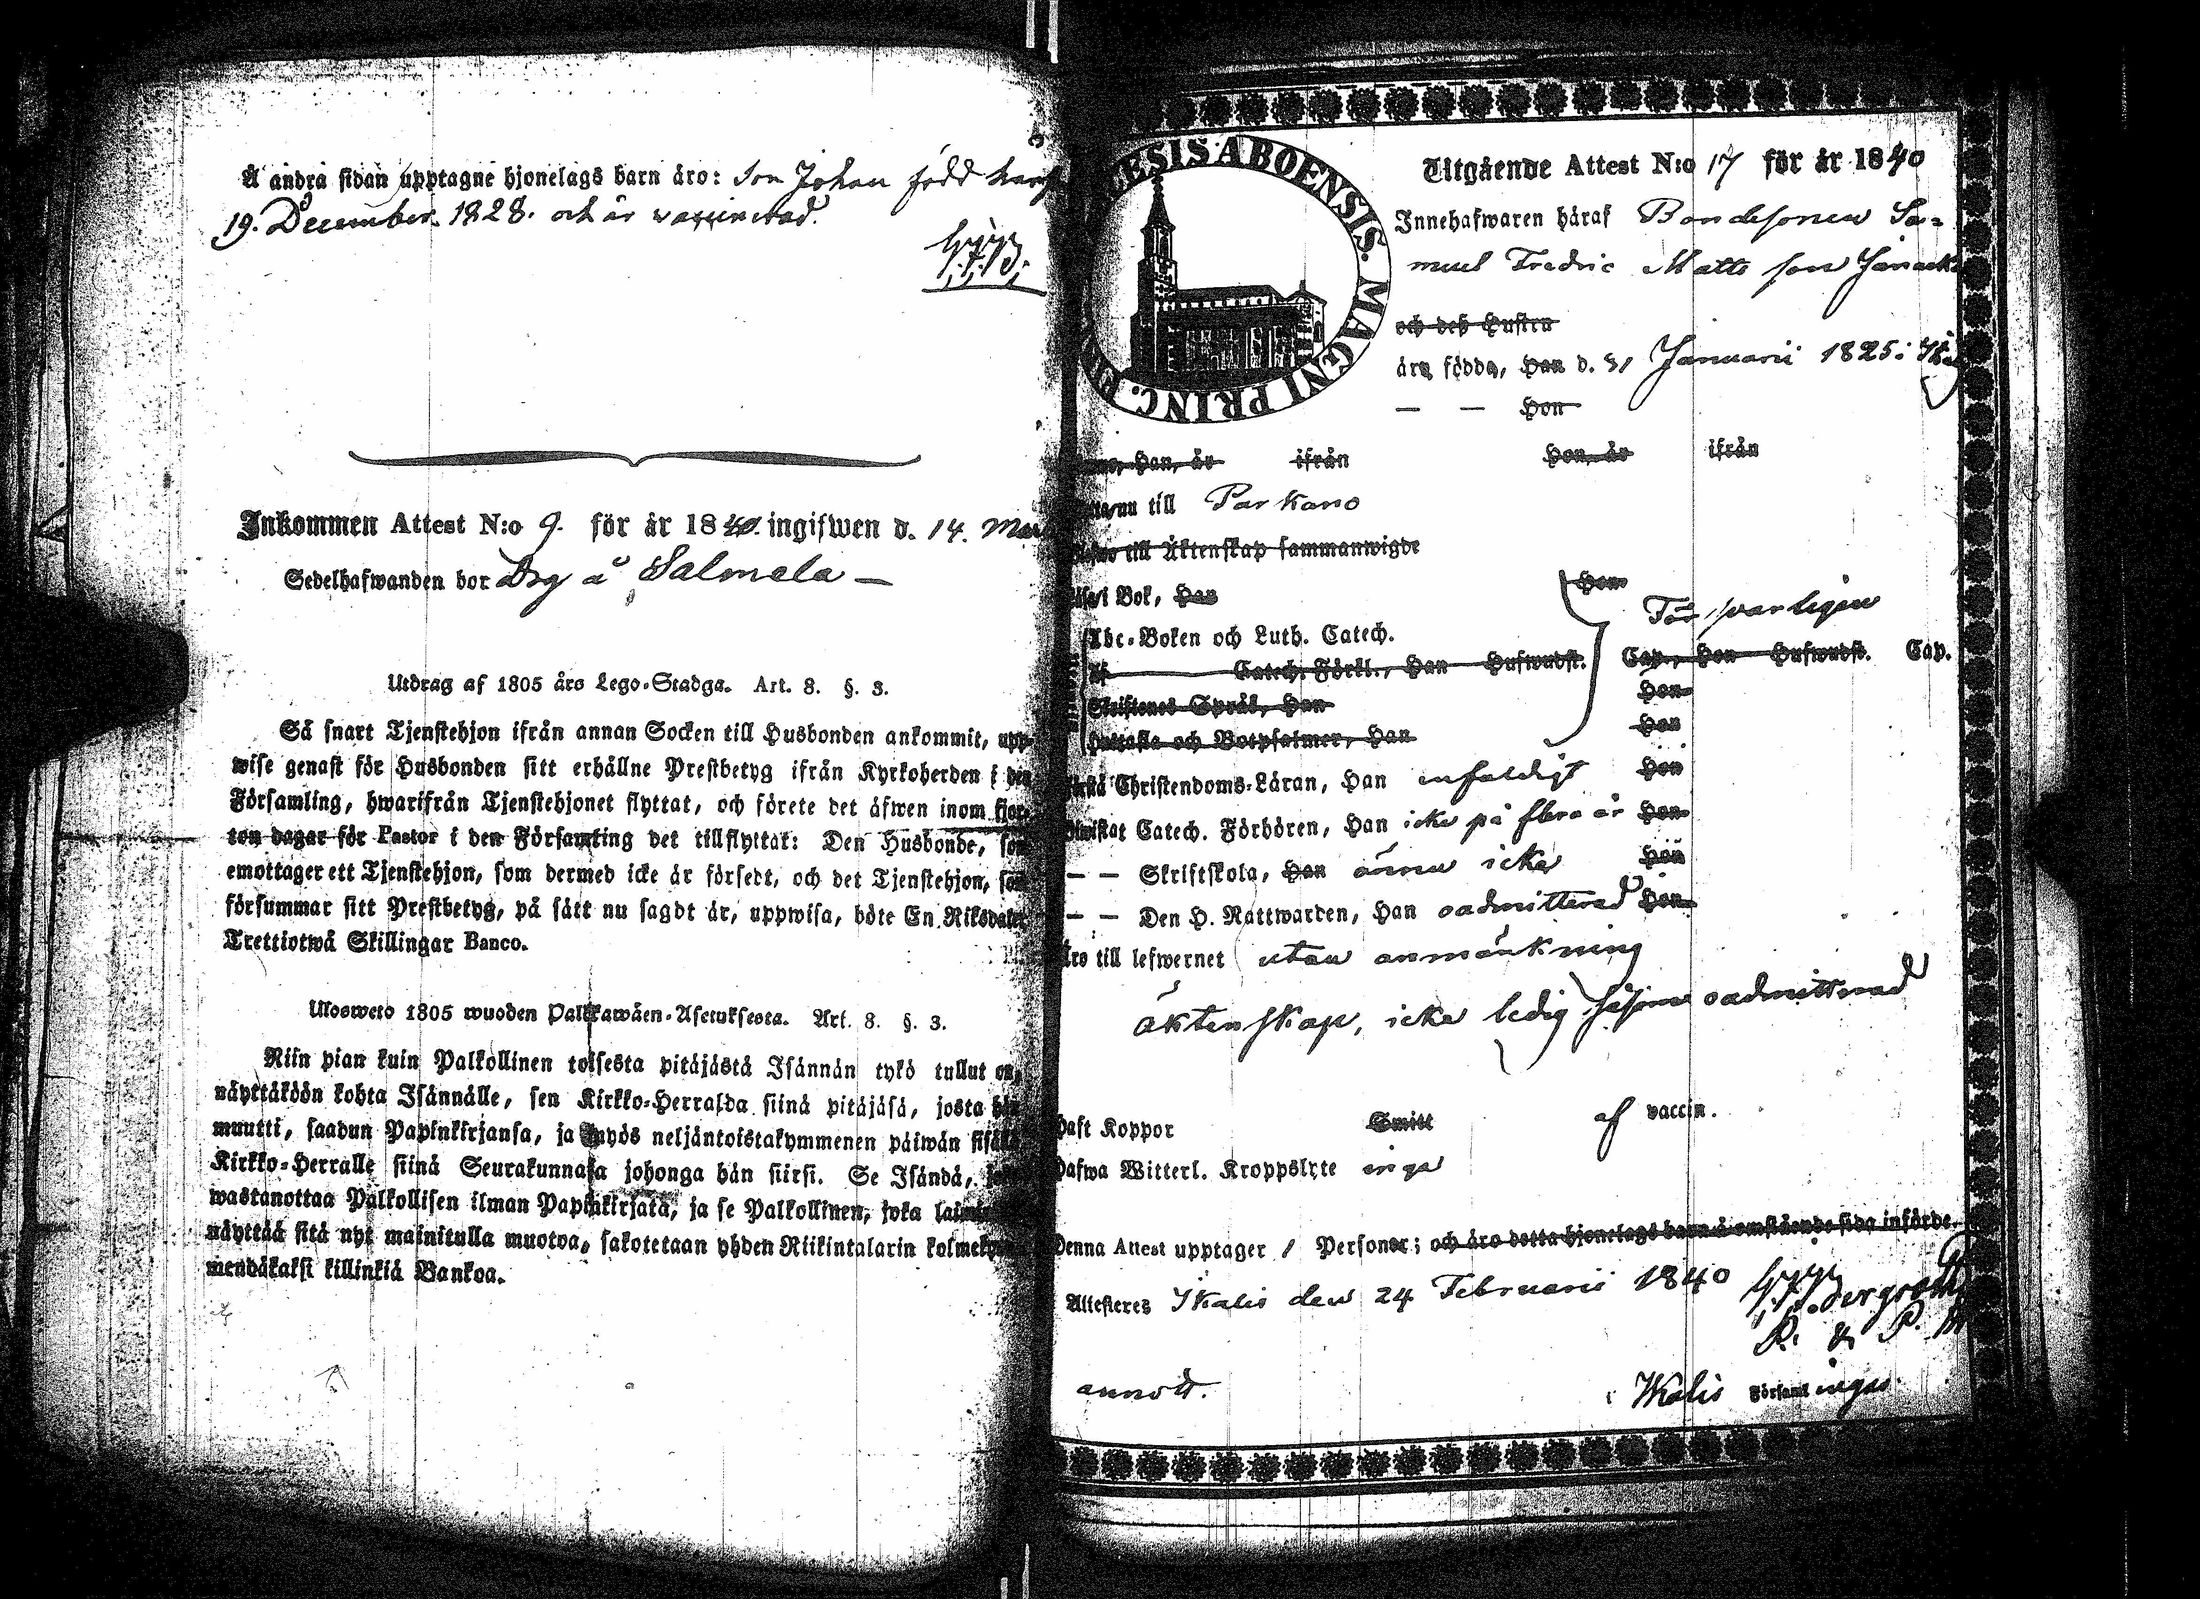 Å andra sidan upptagne hjonelags barn äro: Son Johan född
19. December. 1828. och är vaccinerad.
Inkommen Attest N:o 9. för år 1840. ingifwen d. 14. Mar
Sedelhafwanden bor Drg å Salmela —
Utdrag af 1805 års Lego-Stadga. Art. 8. §. 3.
Så snart Tjenstehjon ifrån annan Socken till Husbonden ankommit, upp-
wise genast för Husbonden sitt erhållne Prestbetyg ifrån Kyrkoherden i den
Församling, hwarifrån Tjenstehjonet flyttat, och förete det äfwen inom fjor-
ton dagar för Pastor i den Församling det tillflyttat: Den Husbonde, som
emottager ett Tjenstehjon, som dermed icke är försedt, och det Tjenstehjon, som
försummar sitt Prestbetyg, på sätt nu sagdt är, uppwisa, böte En Riksdaler
Trettiotwå Skillingar Banco.
Ulosweto 1805 wuoden Palkkawäen-Asetuksesta. Art. 8. §. 3.
Niin pian kuin Palkollinen toisesta pitäjästä Isännän tykö tullut on,
näyttäköön kohta Isännälle, sen Kirkko-Herralda siinä pitäjäsä, josta hän
muutti, saadun Papinkirjansa, ja myös neljäntoistakymmenen päiwän sisällä
Kirkko-Herralle siinä Seurakunnasa johonga hän siirsi. Se Isändä, joka
wastanottaa Palkollisen ilman Papinkirjata, ja se Palkollinen, joka
näyttää sitä nyt mainitulla muotoa, sakotetaan yhden Riikintalarin kolmekym-
mendäkaksi killinkiä Bankoa.
ESIS ABOENSIS. MAGNI PRINC.
Utgående Attest N:o 17 för år 1840
Innehafwaren häraf Bondesonen Sa-
muel Fredric Matts son
och deß Hustru
äro födde, Han d. 31 Januarii 1825 i
— — Hon
Han, är ifrån Hon, är ifrån
nu till Parkano
till Äktenskap sammanwigde
i Bok, Han Hon
Försvarligen
Abc-Boken och Luth. Catech.
Af Catech. Förkl., Han Hufwudst. Cap., Hon Hufwudst. Cap.
Skriftenes Språk, Han Hon
Hustafla och Botpsalmer, Han Hon
Christendoms-Läran, Han enfaldigt Hon
Catech. Förhören, Han icke på flera år Hon
— — Skriftskola, Han ännu icke Hon
— — Den H. Nattwarden, Han oadmitterad Hon
Äro till lefwernet utan anmärkning
äktenskap, icke ledig såsom oadmitterad
Haft Koppor Smitt af vaccin.
Hafwa Witterl. Kroppslyte inga
Denna Attest upptager 1 Personer; och äro detta hjonelags barn å omstående sida införde.
Attesteres Ikalis den 24 Februarii 1840
annott.
i Ikalis Församl